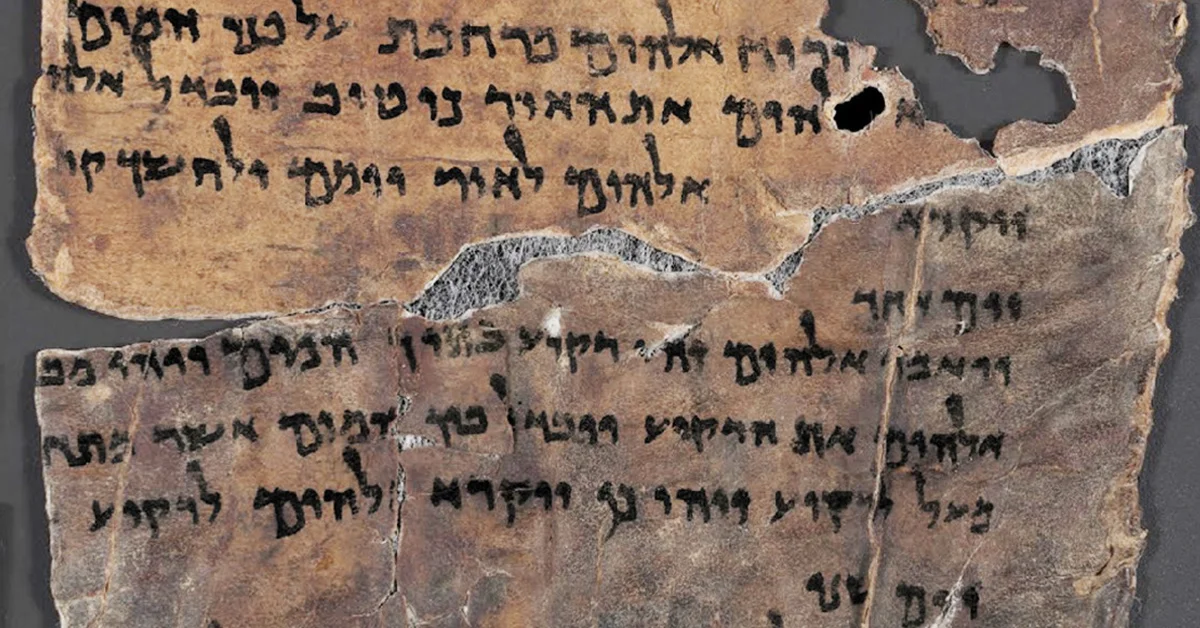 ורוח אלהים מרחפת על פני המים
אלהים את האור כי טוב ויבדל אלהי
אלהים לאור יומם ולחשך קר
ויקרא
יום אחד
ויאמר אלהים יהי רקיע בתוך המים ויהי מב
אלהים את הרקיע ויבדל בין המים אשר מתח
מעל לרקיע ויהי כן ויקרא אלהים לרקיע
יום שני